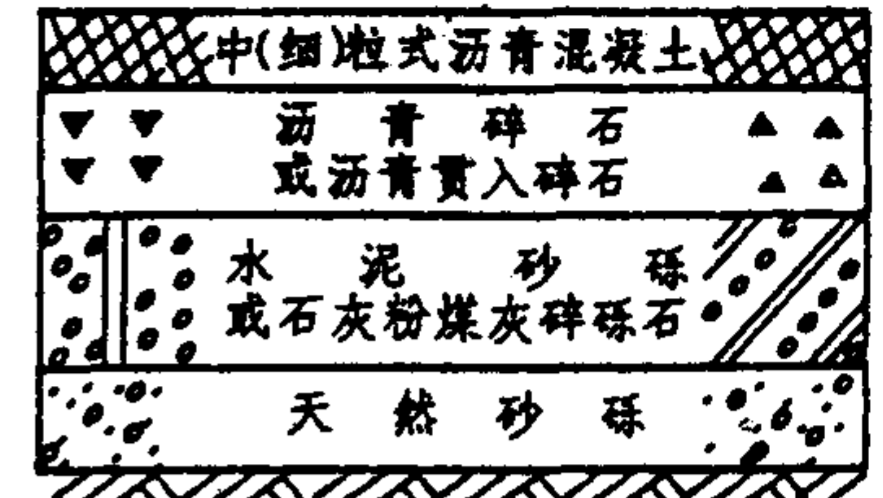 中(细)粒式沥青混凝土
沥青碎石
或沥青贯入碎石
水泥砂砾
或石灰粉煤灰碎砾石
天然砂砾